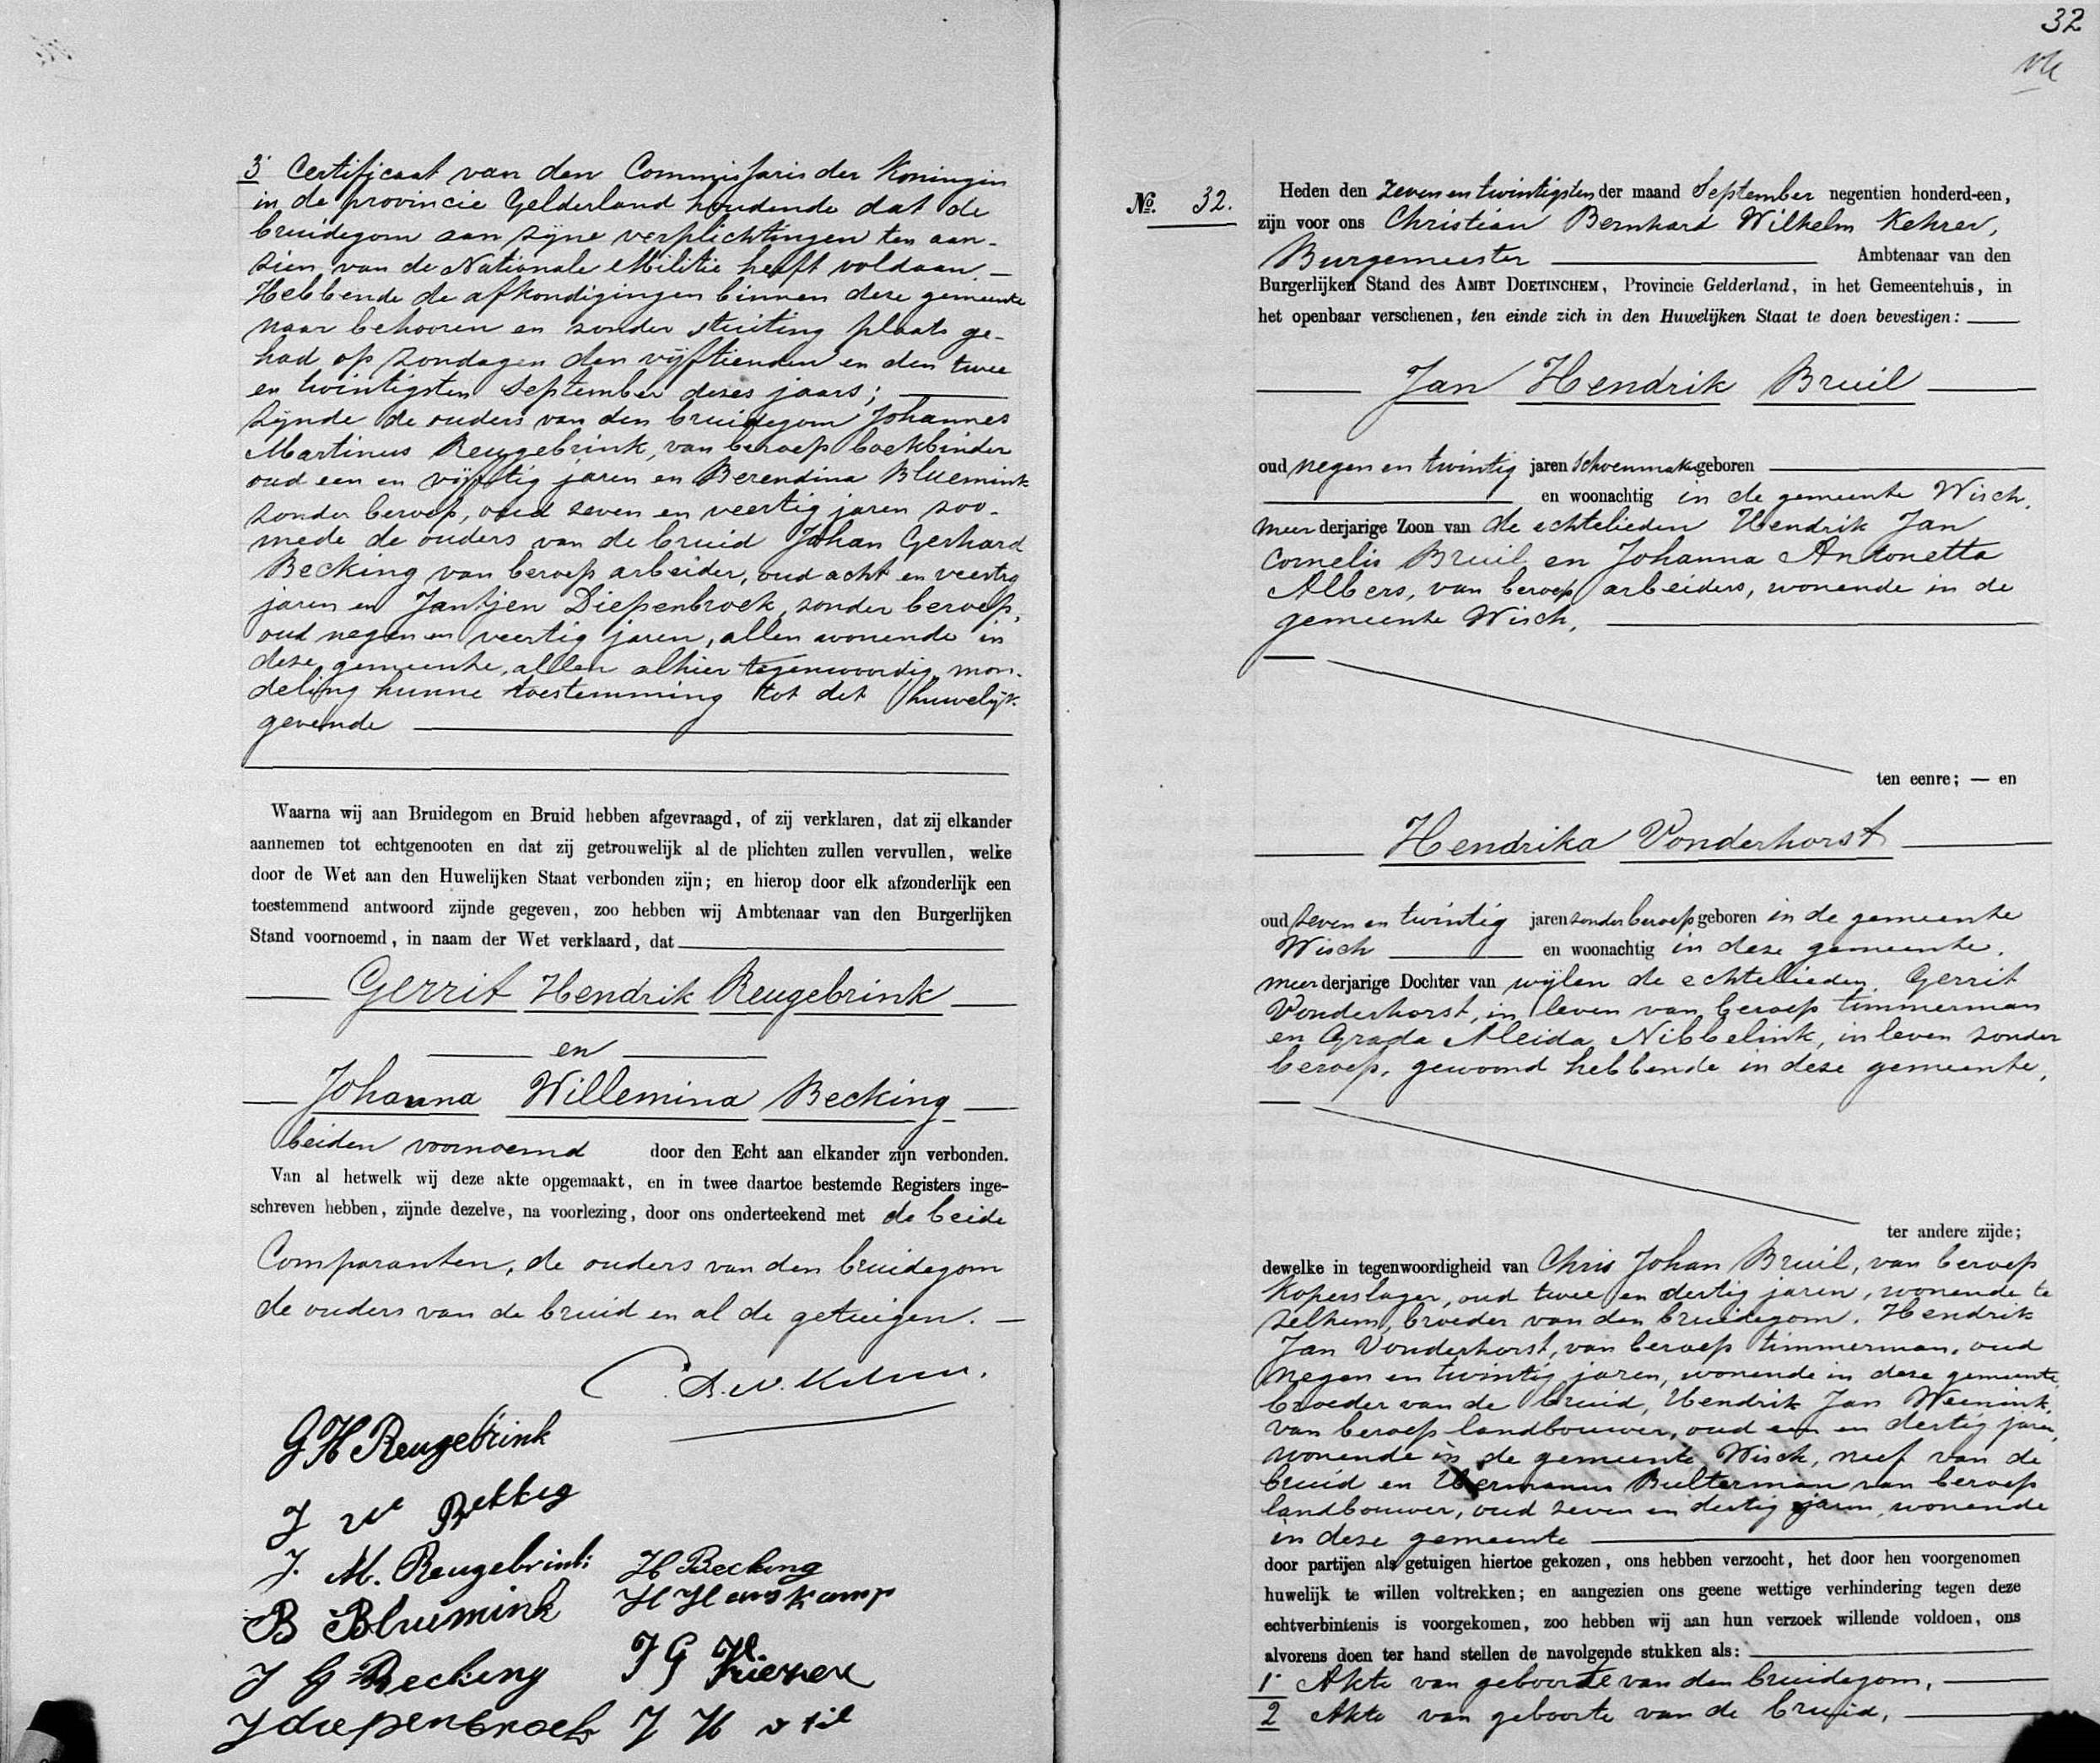 3. Certificaat van den Commissaris der Koningin
in de provincie Gelderland houdende dat de
bruidegom aan zijne verplichtingen ten aan-
zien van de Nationale Militie heeft voldaan. —
Hebbende de afkondigingen binnen deze gemeente
naar behooren en zonder stuiting plaats ge-
had op zondagen den vijftienden en den twee
en twintigsten September dezes jaars;
zijnde de ouders van den bruidegom Johannes
Martinus Reugebrink, van beroep boekbinder
oud een en vijftig jaren en Berendina Bluemink
zonder beroep, oud zeven en veertig jaren zoo-
mede de ouders van de bruid Johan Gerhard
Becking van beroep arbeider, oud acht en veertig
jaren en Jantjen Diepenbroek, zonder beroep,
oud negen en veertig jaren, allen wonende in
deze gemeente, alllen alhier tegenwoordig, mon-
deling hunne toestemming tot dit huwelijk
gevende
Waarna wij aan Bruidegom en Bruid hebben afgevraagd, of zij verklaren, dat zij elkander
aannemen tot echtgenooten en dat zij getrouwelijk al de plichten zullen vervullen, welke
door de Wet aan den Huwelijken Staat verbonden zijn; en hierop door elk afzonderlijk een
toestemmend antwoord zijnde gegeven, zoo hebben wij Ambtenaar van den Burgerlijken
Stand voornoemd, in naam der Wet verklaard, dat
Gerrit Hendrik Reugebrink
en
Johanna Willemina Becking
beiden voornoemd door den Echt aan elkander zijn verbonden.
Van al hetwelk wij deze akte opgemaakt, en in twee daartoe bestemde Registers inge-
schreven hebben, zijnde dezelve, na voorlezing, door ons onderteekend met de beide
Comparanten, de ouders van den bruidegom
de ouders van de bruid en al de getuigen. —
G H Reugebrink
J W Bekkig
J. M. Reugebrink
B Bluemink
J G Becking
J diepenbroek
H Becking
H Henskamp
J G
J H
32
No. 32.
Heden den zeven en twintigsten der maand September negentien honderd-een,
zijn voor ons Christian Bernhard Wilhelm Kehrer,
Burgemeester Ambtenaar van den
Burgerlijken Stand des AMBT DOETINCHEM, Provincie Gelderland, in het Gemeentehuis, in
het openbaar verschenen, ten einde zich in den Huwelijken Staat te doen bevestigen:
Jan Hendrik Bruil
oud negen en twintig jaren schoenmaker geboren
en woonachtig in de gemeente Wisch,
meer derjarige Zoon van de echtelieden Hendrik Jan
Cornelis Bruil en Johanna Antonetta
Albers, van beroep arbeiders, wonende in de
gemeente Wisch,
ten eenre; — en
Hendrika Vonderhorst
oud zeven en twintig jaren zonder beroep geboren in de gemeente
Wisch en woonachtig in deze gemeente,
meer derjarige Dochter van wijlen de echtelieden Gerrit
Vonderhorst, in leven van beroep timmerman
en Grada Aleida Nibbelink, in leven zonder
beroep, gewoond hebbende in deze gemeente,
ter andere zijde;
dewelke in tegenwoordigheid van Chris Johan Bruil, van beroep
Koperslager, oud twee en dertig jaren, wonende te
Zelhem, broeder van den bruidegom. Hendrik
Jan Vonderhorst, van beroep timmerman, oud
negen en twintig jaren, wonende in deze gemeente
broeder van de bruid, Hendrik Jan Weenink,
van beroep landbouwer, oud een en dertig jaren,
wonende in de gemeente Wisch, neef van de
bruid en Hermanus Bulterman van beroep
landbouwer, oud zeven en dertig jaren, wonende
in deze gemeente
door partijen als getuigen hiertoe gekozen, ons hebben verzocht, het door hen voorgenomen
huwelijk te willen voltrekken; en aangezien ons geene wettige verhindering tegen deze
echtverbintenis is voorgekomen, zoo hebben wij aan hun verzoek willende voldoen, ons
alvorens doen ter hand stellen de navolgende stukken als:
1. Akte van geboorte van den bruidegom,
2 Akte van geboorte van de bruid,